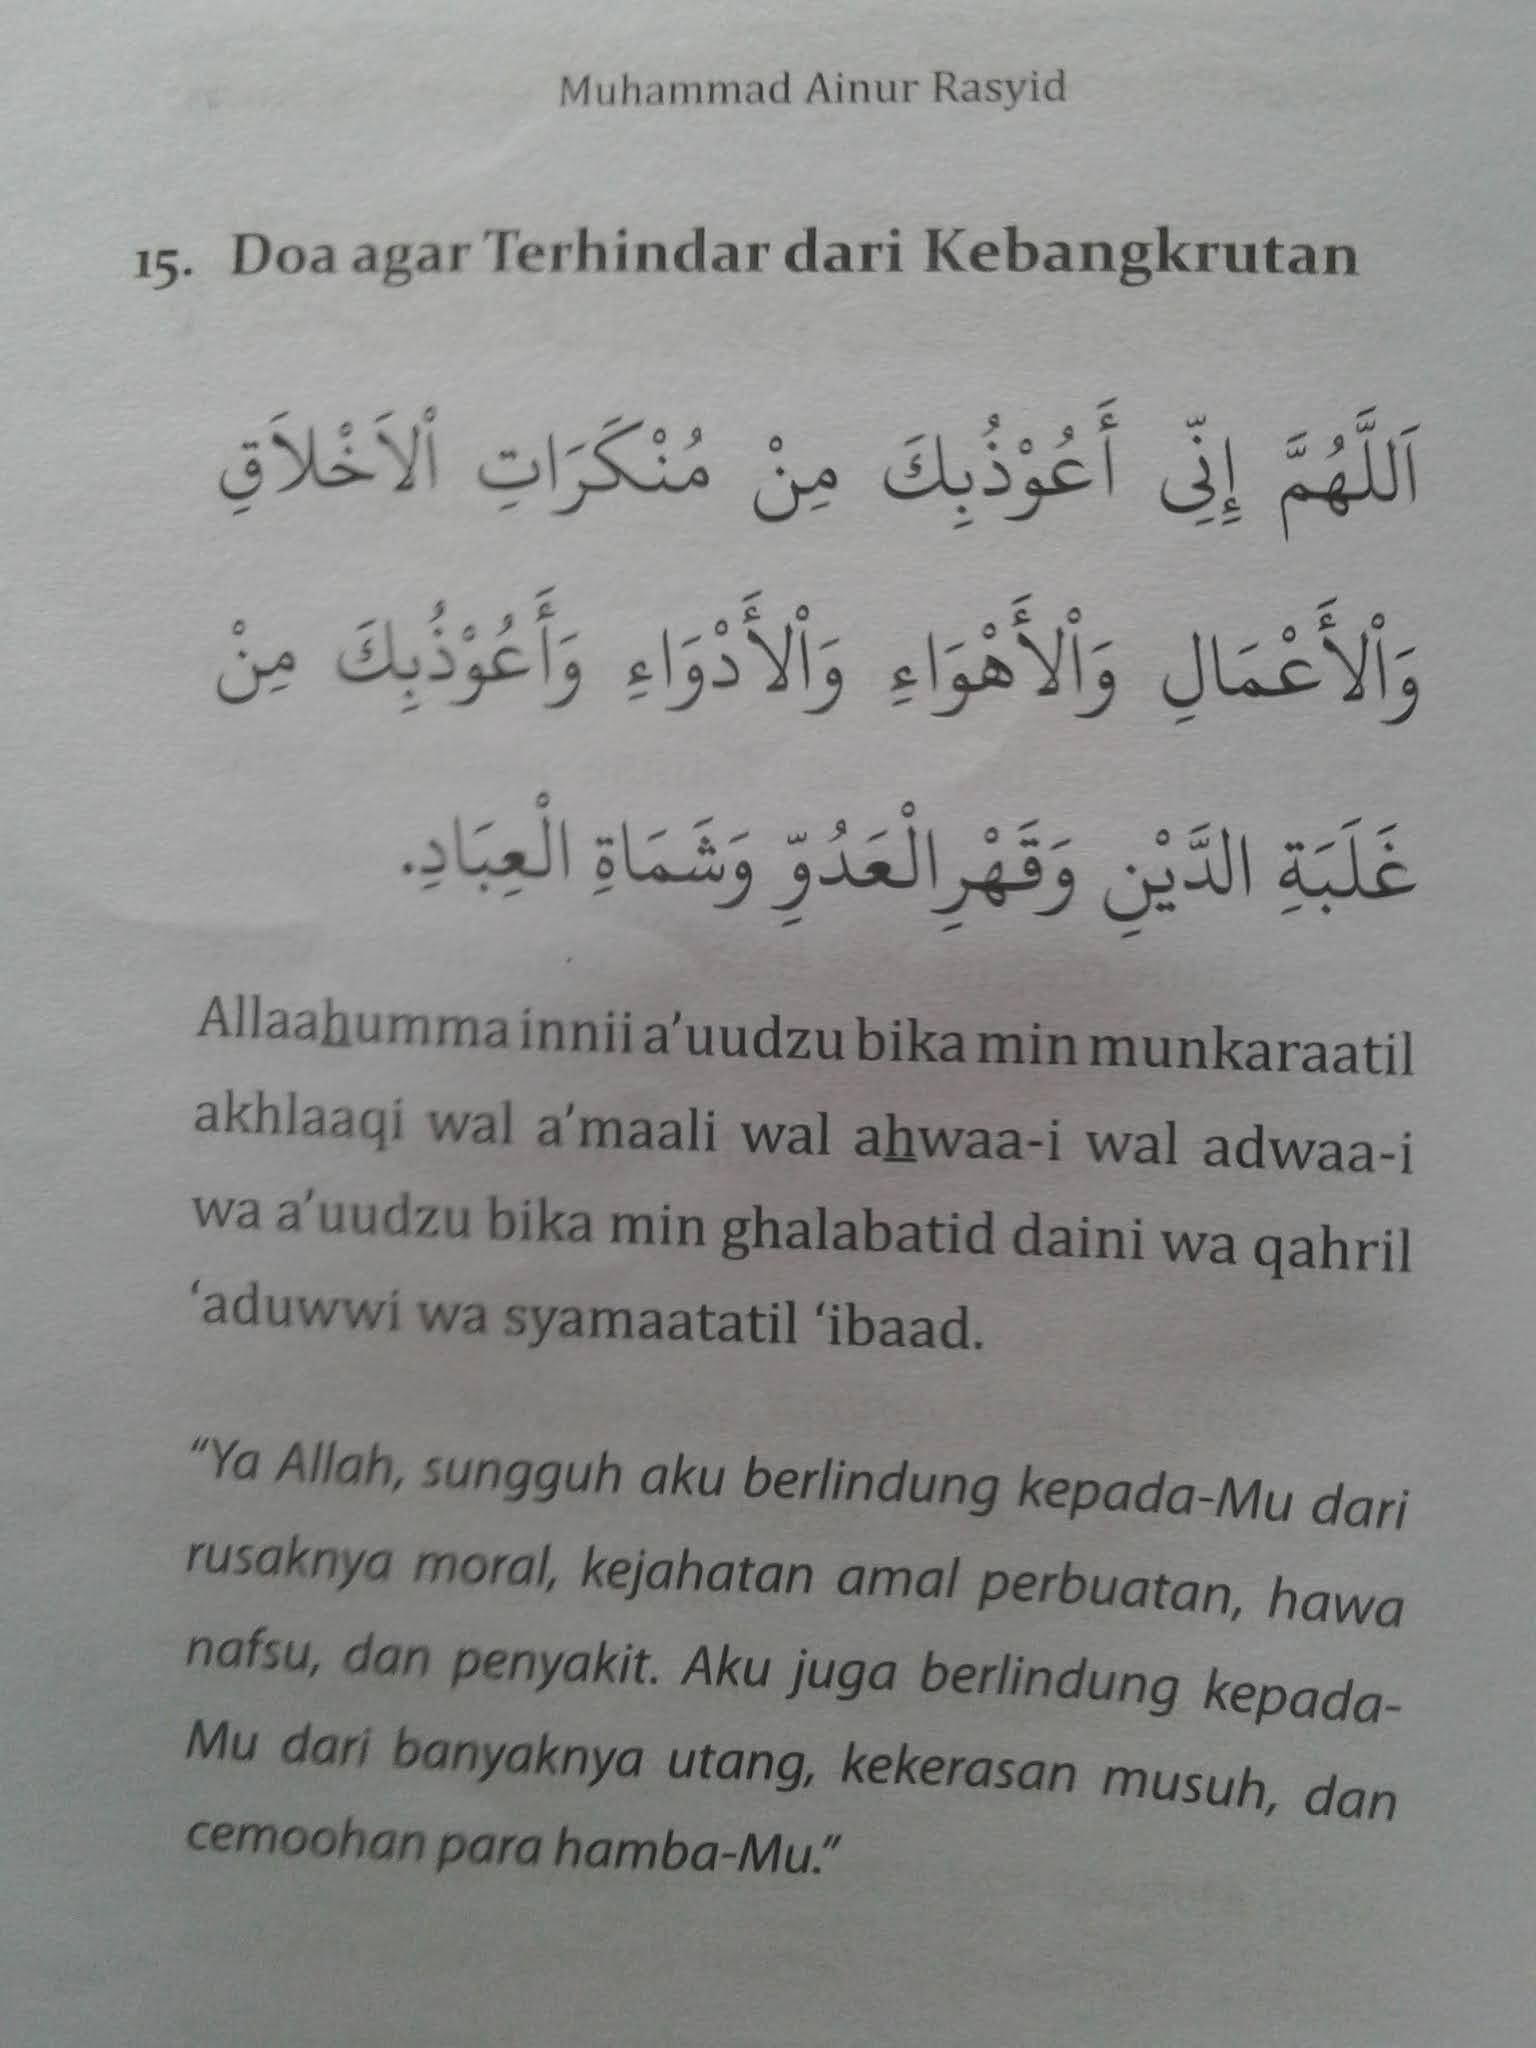 Muhammad Ainur Rasyid
15. Doa agar Terhindar dari Kebangkrutan
اَللَّهُمَّ إِنِّي أَعُوْذُبِكَ مِنْ مُنْكَرَاتِ اْلاَخْلاَقِ
وَاْلأَعْمَالِ وَاْلأَهْوَاءِ وَاْلأَدْوَاءِ وَأَعُوْذُبِكَ مِنْ
غَلَبَةِ الدَّيْنِ وَقَهْرِالْعَدُوِّ وَشَمَاةِ الْعِبَادِ.
Allaahumma innii a’uudzu bika min munkaraatil
akhlaaqi wal a’maali wal ahwaa-i wal adwaa-i
wa a’uudzu bika min ghalabatid daini wa qahril
‘aduwwi wa syamaatatil ‘ibaad.
“Ya Allah, sungguh aku berlindung kepada-Mu dari
rusaknya moral, kejahatan amal perbuatan, hawa
nafsu, dan penyakit. Aku juga berlindung kepada-
Mu dari banyaknya utang, kekerasan musuh, dan
cemoohan para hamba-Mu.”